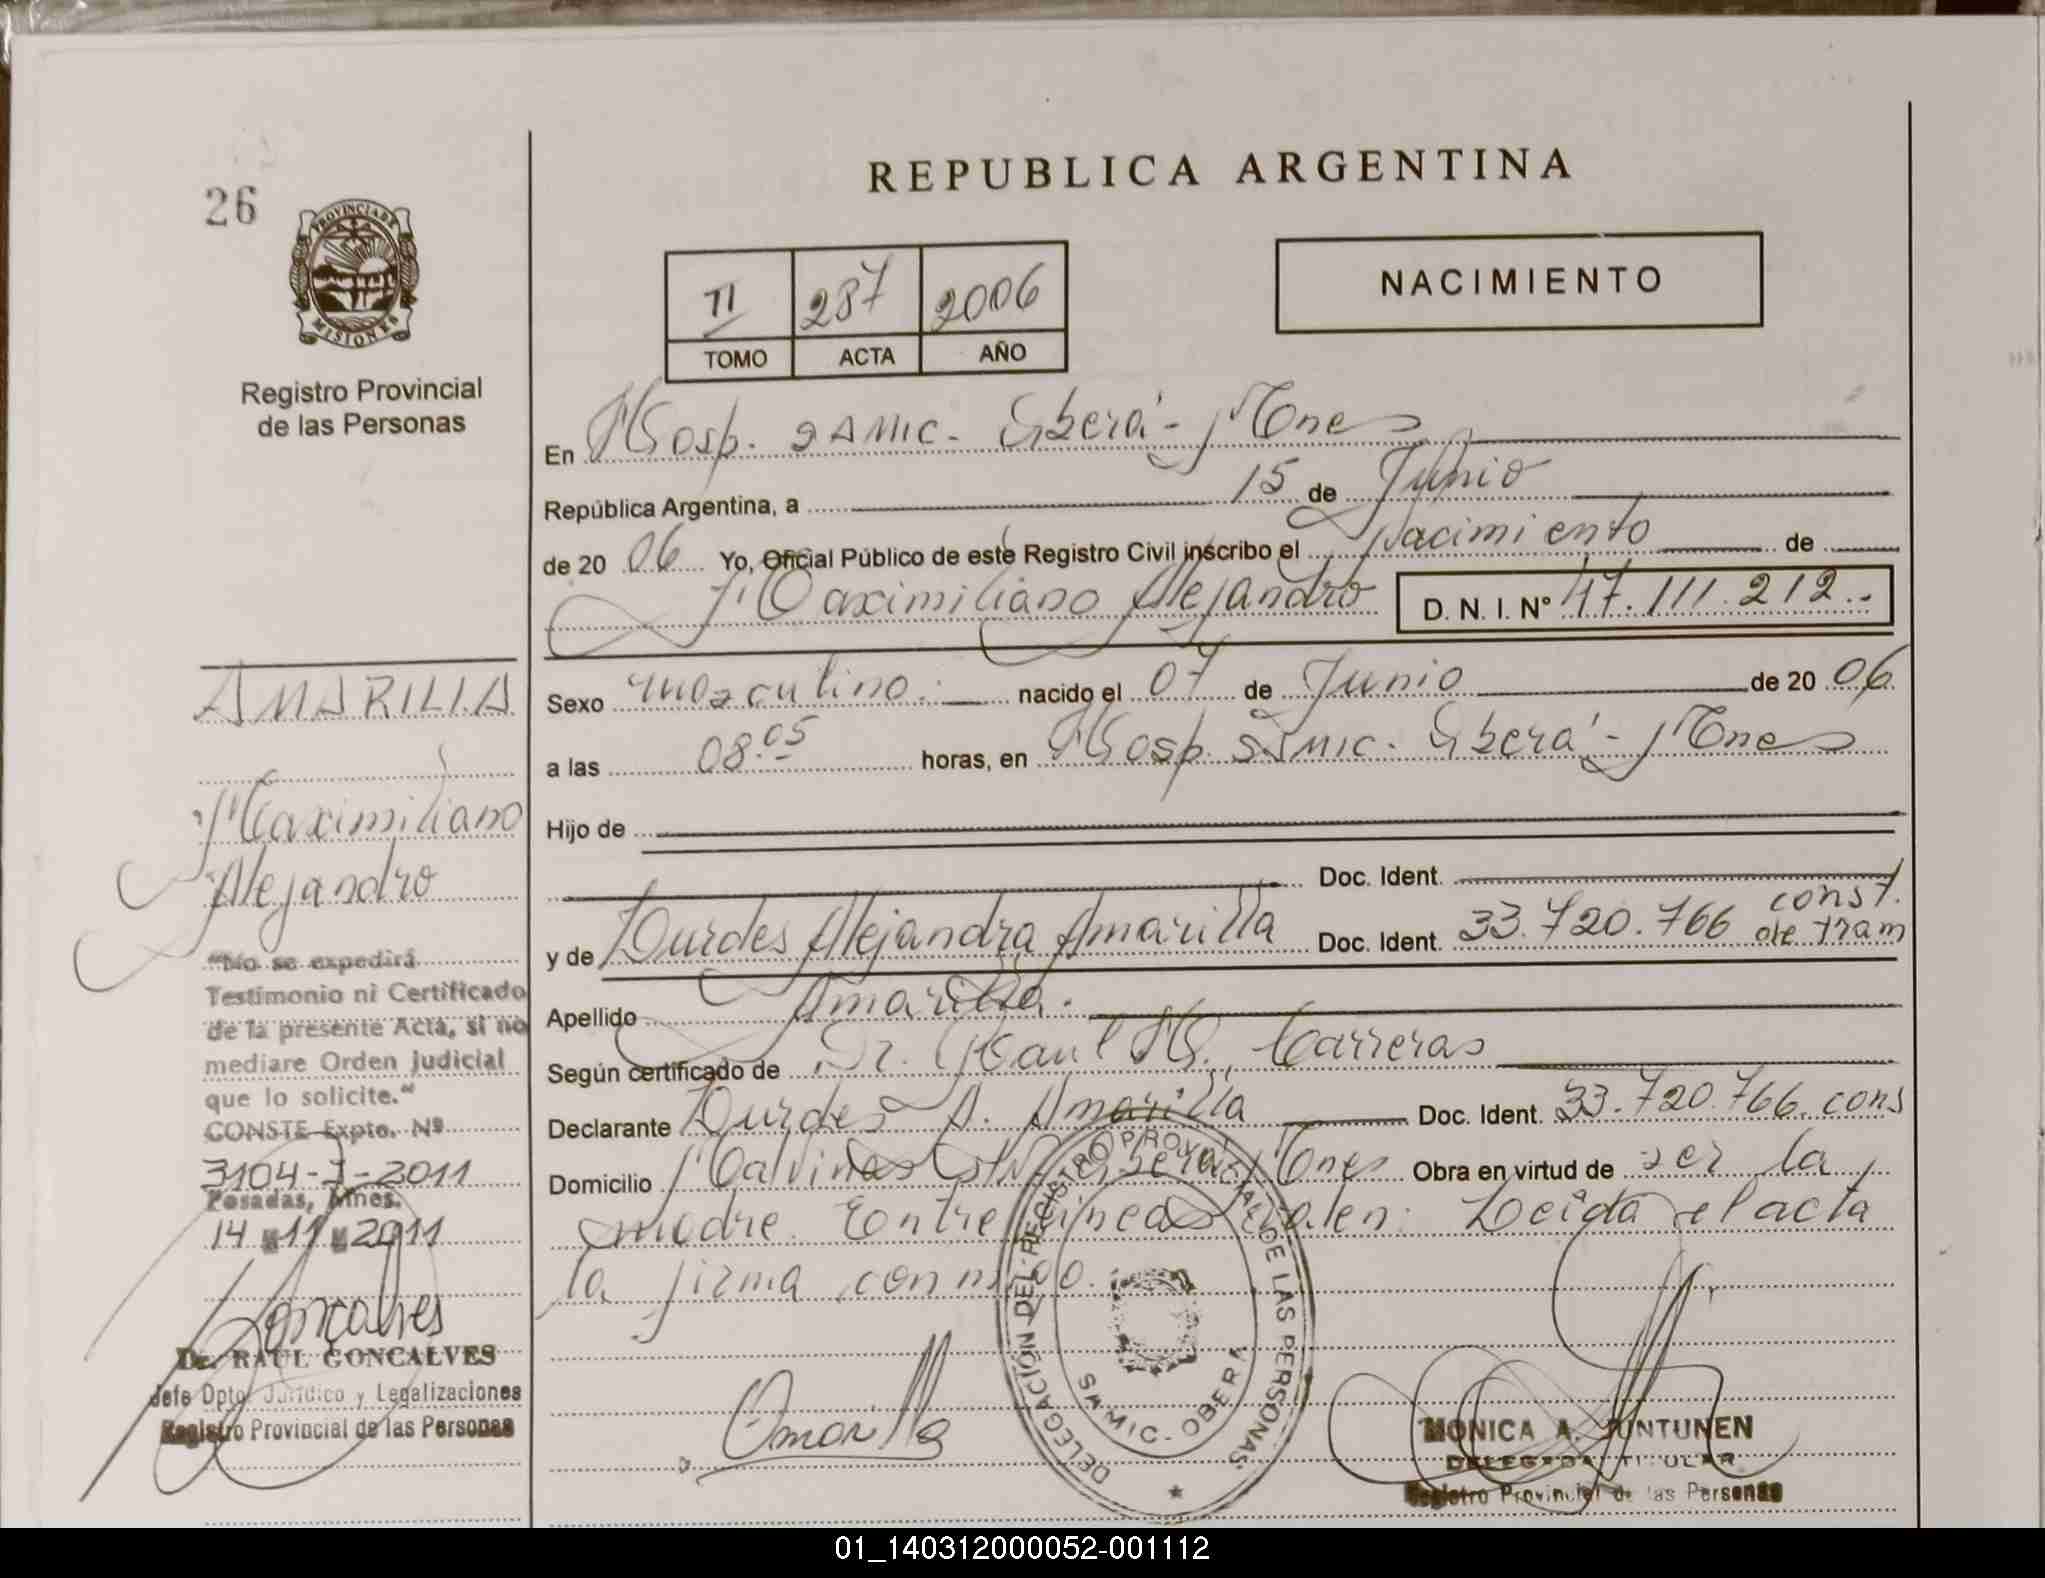 26
PROVINCIA DE
MISIONES
Registro Provincial
de las Personas
REPUBLICA ARGENTINA
II 287 2006
TOMO ACTA AÑO
NACIMIENTO
En Hosp. SAMIC. Oberá - Mnes
República Argentina, a 15 de Junio
de 20 06 Yo, Oficial Público de este Registro Civil inscribo el Nacimiento de
Maximiliano Alejandro D. N. I. Nº 47.111.212.-
Sexo masculino.- nacido el 07 de Junio de 20 06
a las 08.05 horas, en Hosp. SAMIC. Oberá - Mnes
Hijo de
Doc. Ident.
y de Lourdes Alejandra Amarilla Doc. Ident. 33.720.766 const. de tram
Apellido Amarilla.
Según certificado de Dr. Raul H. Carreras
Declarante Lourdes A. Amarilla Doc. Ident. 33.720.766. cons
Domicilio Malvinas Oberá Mnes Obra en virtud de ser la
madre. Entre lineas valen: Leida el acta
la firma conmigo.
AMARILLA
Maximiliano
Alejandro
"No se expedirá
Testimonio ni Certificado
de la presente Acta, si no
mediare Orden judicial
que lo solicite."
CONSTE Expte. Nº
3104-J-2011
Posadas, Mnes.
14 11 2011
Goncalves
Dr. RAUL GONCALVES
Jefe Dpto. Jurídico y Legalizaciones
Registro Provincial de las Personas
Amarilla
DELEGACIÓN DEL REGISTRO PROVINCIAL DE LAS PERSONAS
SAMIC - OBERA
MONICA A. JUNTUNEN
DELEGADA TITULAR
Registro Provincial de las Personas
01_140312000052-001112